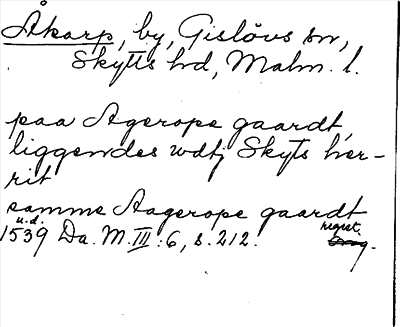 Åkarp, by, Gislövs sn,
Skytts hd, Malm. l.
paa Agerope gaardt,
liggendes wdtj Skyts her-
rit
samme Aagerope gaardt
u.d.
1539 Da. M. III: 6, s. 212. regest.